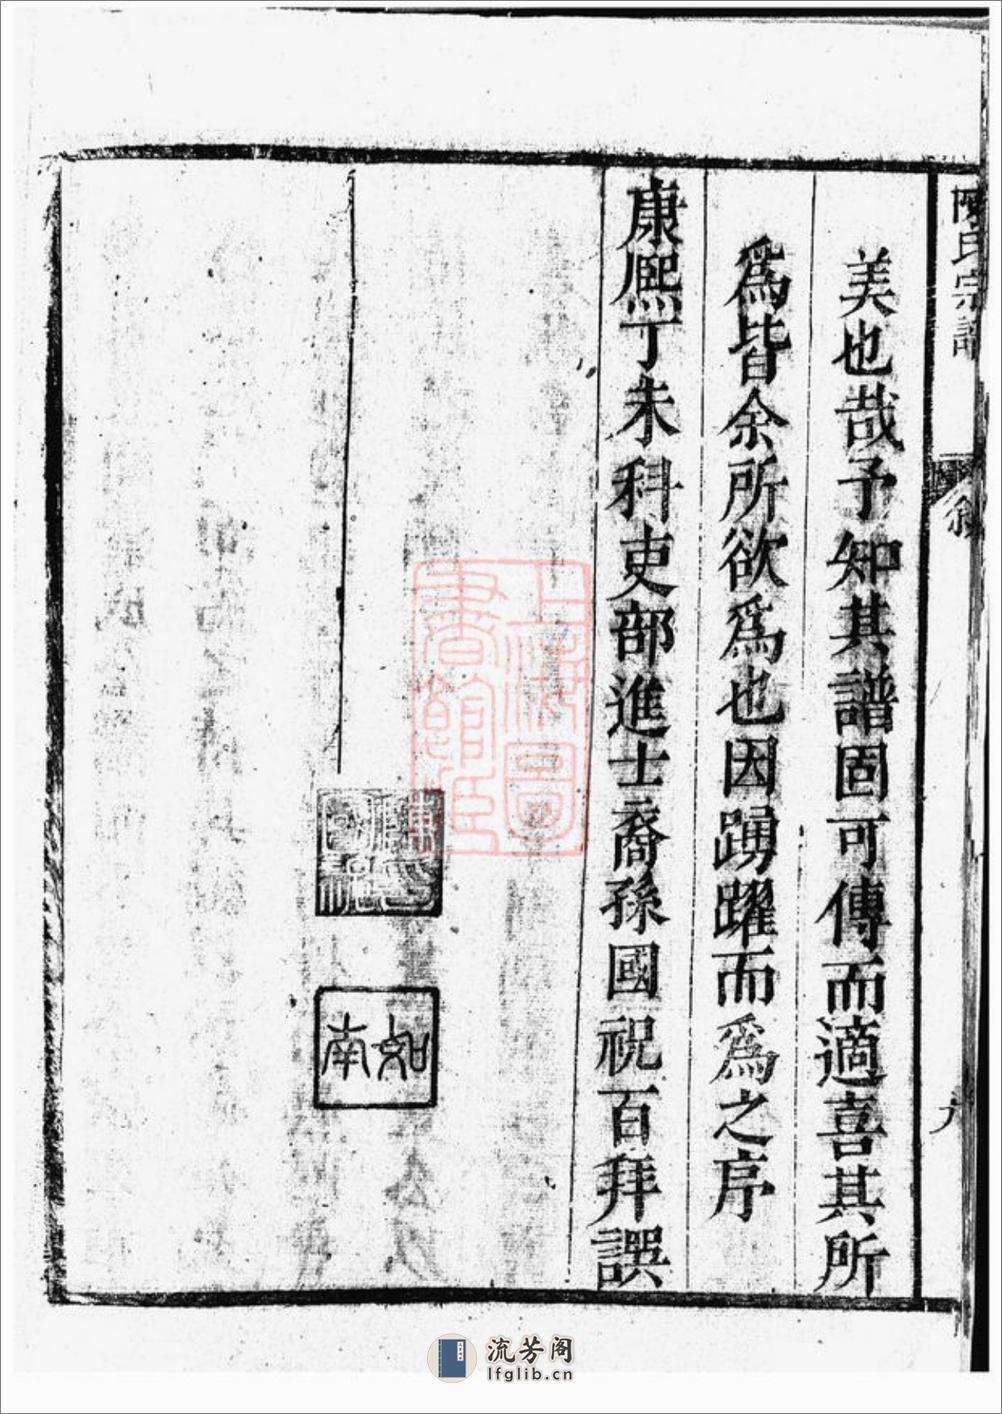 陳氏宗譜
敘
六
美也哉予知其譜固可傳而適喜其所
爲皆余所欲爲也因踴躍而爲之序
康熙丁未科吏部進士裔孫國祝百拜譔
上海圖書館臧
如南
流芳阁
lfglib.cn